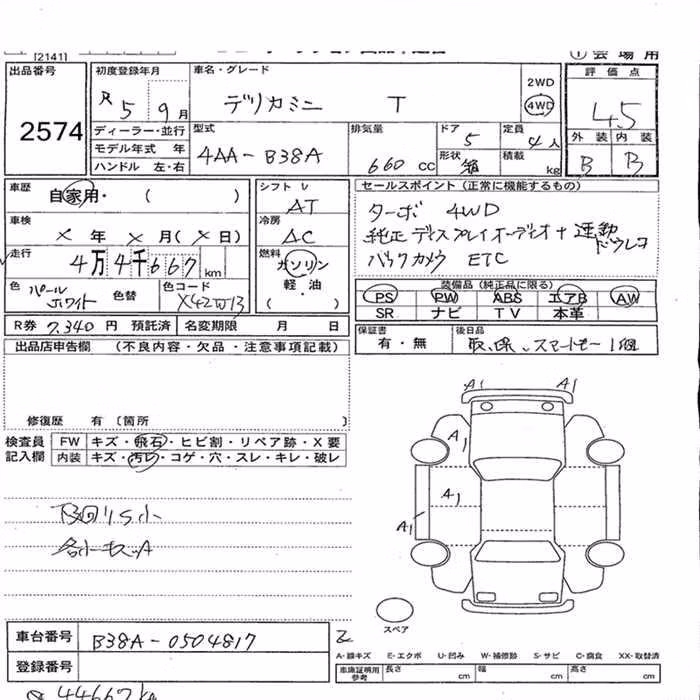 [2141]
① 会場用
出品番号
2574
初度登録年月
R 5 9月
車名・グレード
デリカミニ T
2WD
4WD
評価点
4.5
ディーラー・並行
モデル年式 年
ハンドル 左・右
型式
4AA-B38A
排気量
660 CC
ドア
5
定員
4人
形状
箱
積載
kg
外装 内装
B B
車歴
自家用・( )
車検
× 年 × 月(× 日)
走行
4万4千667 km
色
パールホワイト
色替
色コード
シフト
AT
冷房
AC
燃料
ガソリン
軽・油
( )
セールスポイント (正常に機能するもの)
ターボ 4WD
純正ディスプレイオーディオ+連動ドラレコ
バックカメラ ETC
装備品 (純正品に限る)
PS PW ABS エアB AW
SR ナビ TV 本革
R券 7,340 円 預託済 名変期限 月 日
保証書
有・無
後日品
取、保、スマートキー1個
出品店申告欄 (不良内容・欠品・注意事項記載)
修復歴 有 〔箇所 〕
検査員
記入欄
FW キズ・飛石・ヒビ割・リペア跡・X要
内装 キズ・汚レ・コゲ・穴・スレ・キレ・破レ
各小キズA
A1 A1
A1
A1
A1
スペア
車台番号
B38A-0504817
登録番号
A-線キズ E-エクボ U-凹み W-補修跡 S-サビ C-腐食 XX-取替済
車庫証明用参考 長さ cm 幅 cm 高さ cm
44667km